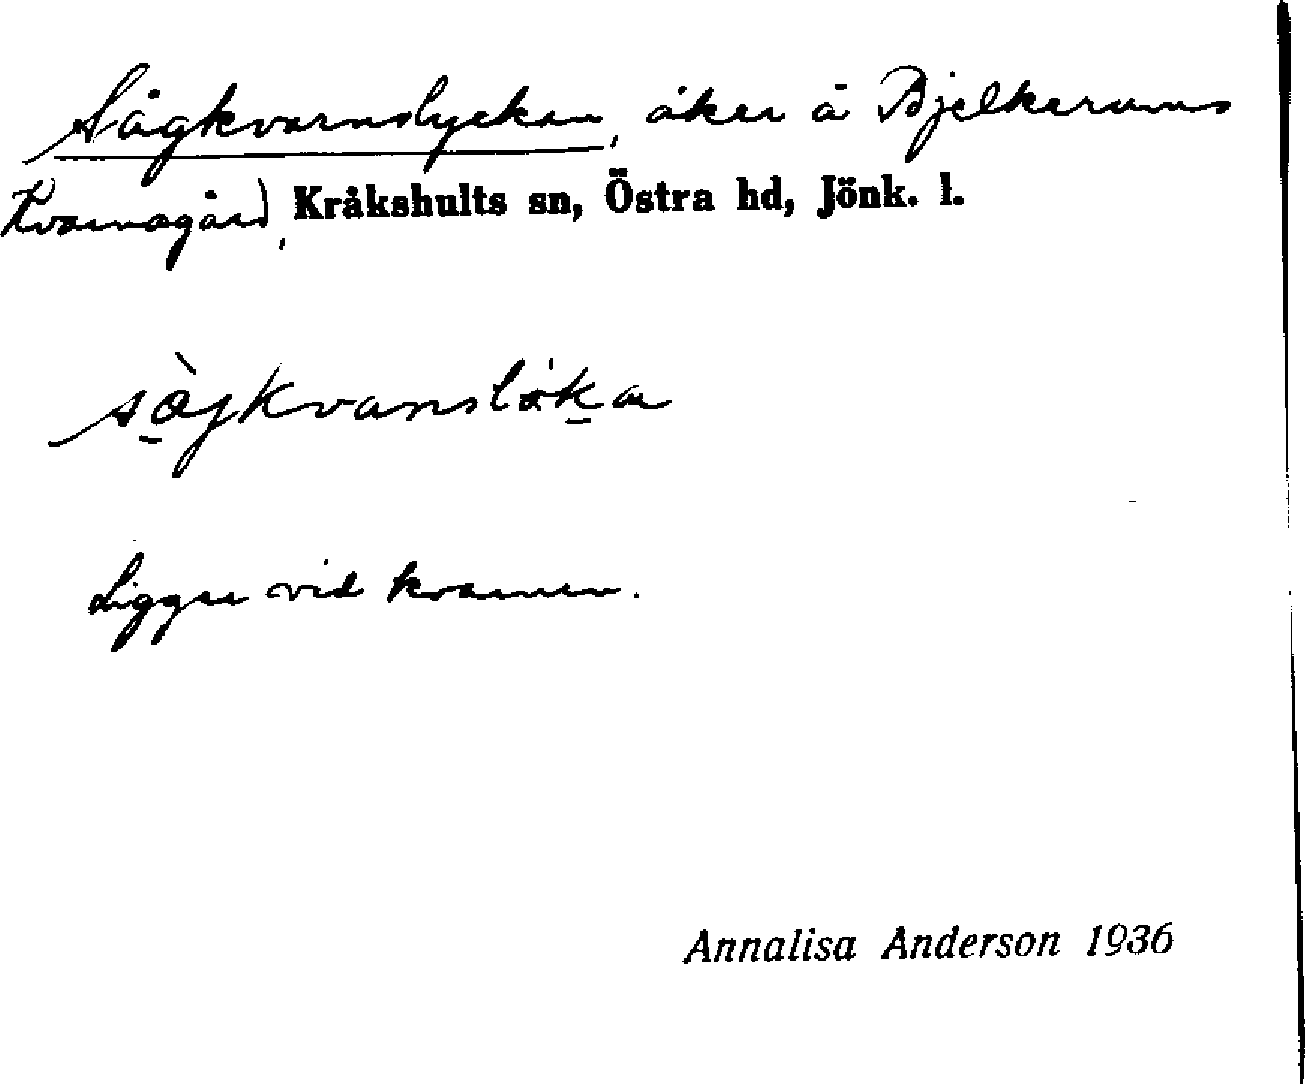 Sågkvarnslyckan, åker å Bjelkerums
Kvarnagård, Kråkshults sn, Östra hd, Jönk. l.
sàjkvanslö́ka
Ligger vid kvarnen.
Annalisa Anderson 1936